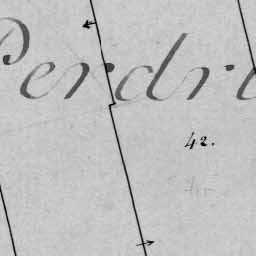 Perdri
42.